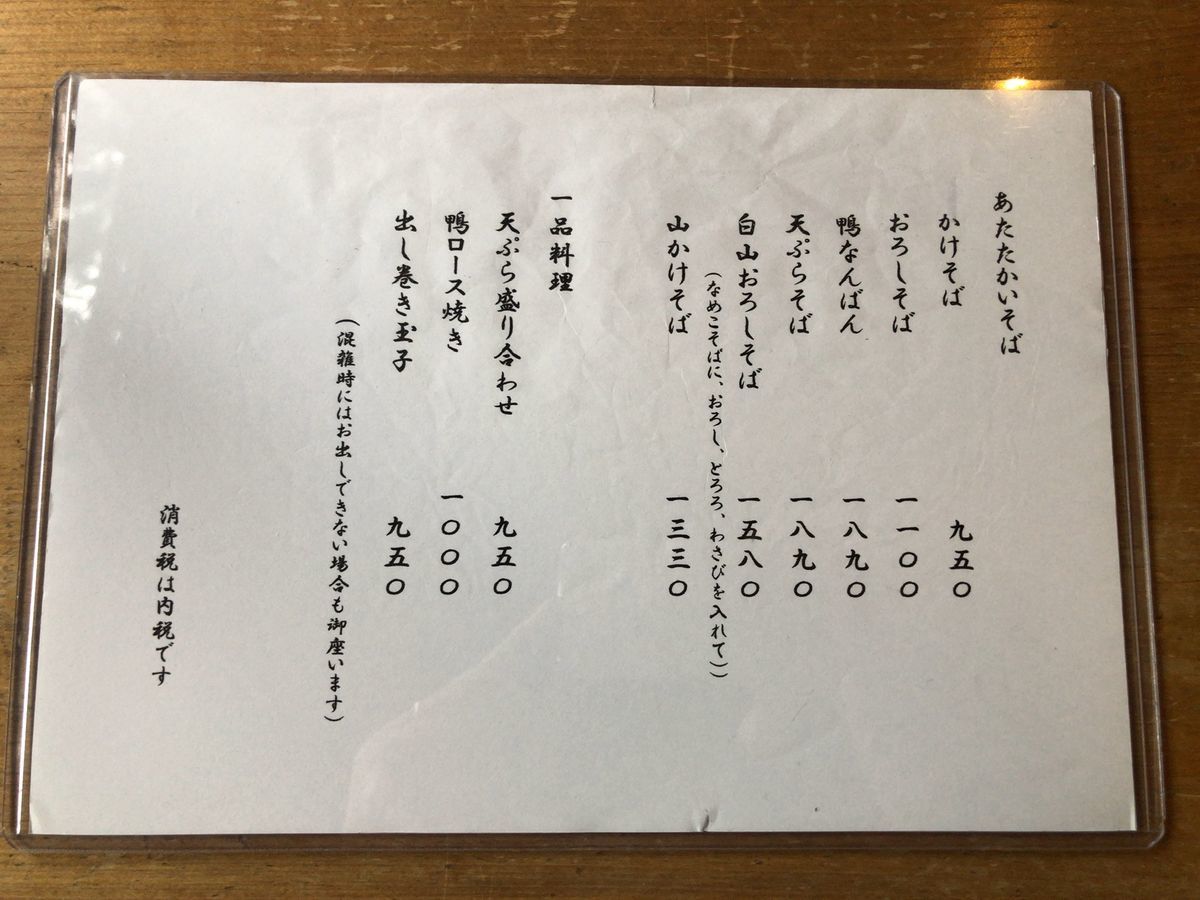 あたたかいそば
かけそば 九五〇
おろしそば 一一〇〇
鴨なんばん 一八九〇
天ぷらそば 一八九〇
白山おろしそば 一五八〇
(なめこそばに、おろし、とろろ、わさびを入れて))
山かけそば 一三三〇
一品料理
天ぷら盛り合わせ 九五〇
鴨ロース焼き 一〇〇〇
出し巻き玉子 九五〇
(混雑時にはお出しできない場合も御座います)
消費税は内税です